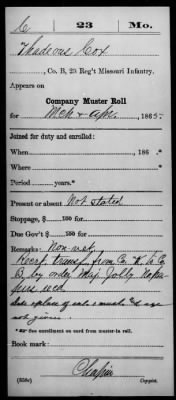 C | 23 | Mo.
Thadeous Cox
, Co. B, 23 Reg't Missouri Infantry.
Appears on
Company Muster Roll
for Mch & Apr., 1865.
Joined for duty and enrolled:
When , 186 .*
Where .*
Period years.*
Present or absent Not stated
Stoppage, $ 100 for
Due Gov't $ 100 for
Remarks: Non-vet.
Recd transf from Co. K to Co
B by order Maj Jolly No pa-
pers recd
Date & place of enl. & must. & age
not given.
* See enrollment on card from muster-in roll.
Book mark:
(358c) Copyist.